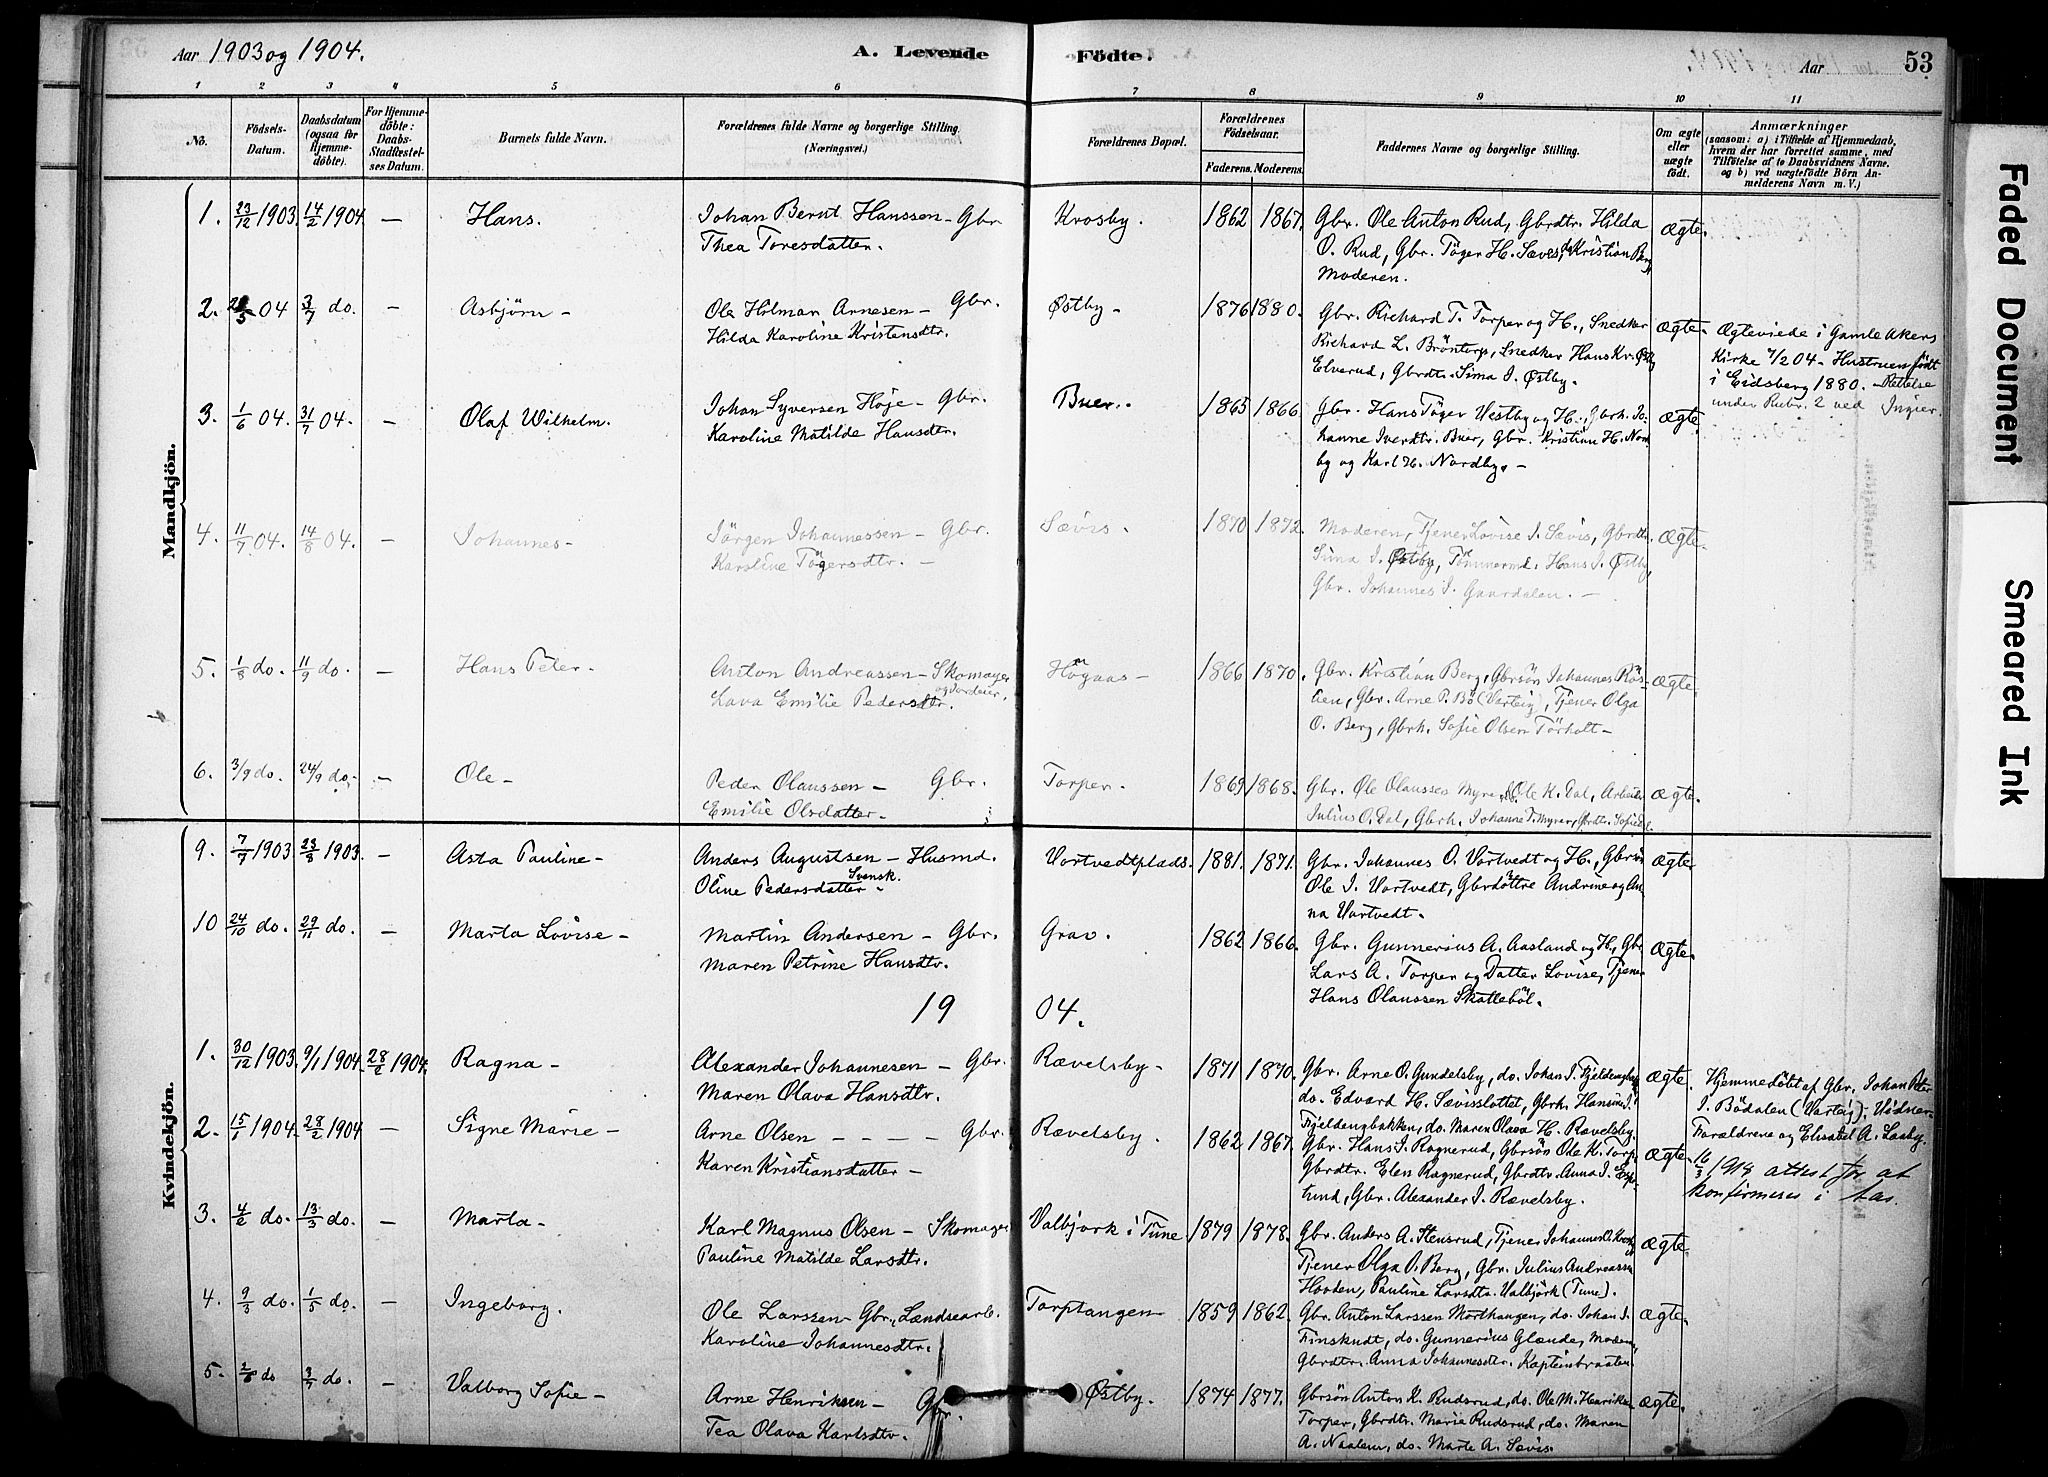 Aar 1903 og 1904.
A. Levende Fødte.
Aar
53
1 2 3 4 5 6 7 8 9 10 11
No.
Födsels-Datum.
Daabsdatum (ogsaa for Hjemmedöbte).
For Hjemmedöbte: Daabs-Stadfæstelses Datum.
Barnets fulde Navn.
Forældrenes fulde Navne og borgerlige Stilling. (Næringsvei.)
Forældrenes Bopæl.
Forældrenes Födselsaar.
Faderens. Moderens.
Faddernes Navne og borgerlige Stilling.
Om ægte eller uægte födt.
Anmærkninger
(saasom: a) i Tilfælde af Hjemmedaab, hvem der har forrettet samme, med Tilföielse af to Daabsvidners Navne, og b) ved uægtefödte Börn Anmelderens Navn m. V.)
Mandkjön.
1. 23/12 1903. 14/2 1904 — Hans. Johan Bernt Hanssen — Gbr. Krosby. 1862 1867. Gbr. Ole Anton Rud, Gbrdtr. Hilda ægte.
Thea Toresdatter. O. Rud, Gbr. Töger H. Sævis, do Kristian Berg
Moderen.
2. 04 3/7 do. — Asbjörn — Ole Hilmar Arnesen — Gbr. Østby — 1876 1880. Gbr. Richard T. Torper og H., Snedker ægte. Ægteviede i Gamle Akers
Hilda Karoline Kristensdtr. Richard L. Bröntorp, Snedker Hans Kr. Østby Kirke 7/2 04 — Hustruen født
Elverud, Gbrdtr. Sima I. Østby. i Eidsberg 1880. — Rettelse
under Rubr. 2 ved Ingier.
3. 1/6 04. 31/7 04. — Olaf Wilhelm. Johan Syversen Høje — Gbr. Buer. 1865 1866. Gbr. Hans Töger Vestby og H., Gbrk. Jo- ægte.
Karoline Matilde Hansdtr. hanne Iverdtr. Buer, Gbr. Kristian H. Nord
by og Karl H. Nordby. —
4. 11/7 04. 14/8 04. — Johannes — Jörgen Johannessen — Gbr. Sævis. 1870 1872. Moderen, Tjener Lovise I. Sævis, Gbrdtr. ægte.
Karoline Tögersdtr. — Sima I. Østby, Tömmermd. Hans I. Østby,
Gbr. Johannes I. Gaardalen. —
5. 1/8 do. 11/9 do. — Hans Peter — Anton Andreassen — Skomager Högaas — 1866 1870. Gbr. Kristian Berg, Gbrsön Johannes Rös- ægte.
Lava Emilie Pedersdtr. og Jordeier. lien, Gbr. Arne P. Bö (Varteig), Tjener Olga
O. Berg, Gbrk. Sofie Olsen Törholt —
6. 3/9 do. 24/9 do. — Ole — Peder Olaussen — Gbr. Torper. 1869 1868. Gbr. Ole Olaussen Myrer, Ole K. Dal, Arbeider ægte.
Emilie Olsdatter. Julius O. Dal, Gbrk. Johanne T. Myrer, Gbrdtr. Sofie
Kvindekjön.
9. 7/7 1903 23/8 1903. — Asta Pauline — Anders Augustsen — Husmd. Vortvedtplads. 1881. 1871. Gbr. Johannes O. Vortvedt og H., Gbrsön ægte
Svensk.
Oline Pedersdatter. Ole I. Vortvedt, Gbrdöttre Andrine og An
na Vortvedt.
10 24/10 do. 29/11 do. — Marta Lovise — Martin Andersen — Gbr. Grav. 1862 1866. Gbr. Gunnerius A. Aasland og H., Gbr. ægte.
Maren Petrine Hansdtr. Lars A. Torper og Datter Lovise, Tjener
Hans Olaussen Skattebøl.
19 04.
1. 30/12 1903. 9/1 1904. 28/2 1904. Ragna — Alexander Johannesen — Gbr. Rævelsby — 1871 1870. Gbr. Arne O. Gundelsby, do. Johan T. Fjeldengbak ægte. Hjemmedöbt af Gbr. Johan Peter
Maren Olava Hansdtr. do. Edvard H. Sævisslottet, Gbrk. Hansine I. I. Bödalen (Varteig). Vidner
Fjeldengbakken, do. Maren Olava H. Rævelsby. Forældrene og Elisabet A. Laaby.
2. 15/1 1904. 28/2 1904 — Signe Marie — Arne Olsen — — — — Gbr. Rævelsby. 1862 1867. Gbr. Hans I. Ragnerud, Gbrsön Ole K. Torp, ægte. 16/3 1918 attest for at
Karen Kristiansdatter — Gbrdtr. Elen Ragnerud, Gbrdtr. Anna I. konfirmeres i Aas.
lund, Gbr. Alexander I. Rævelsby.
3. 4/2 do. 13/3 do. — Marta — Karl Magnus Olsen — Skomager Valbjørk i Tune 1879 1878. Gbr. Anders A. Stensrud, Tjener Johannes O. Krosby ægte.
Pauline Matilde Larsdtr. Tjener Olga O. Berg, Gbr. Julius Andreassen
Hovden, Pauline Larsdtr. Valbjörk (Tune).
4. 9/3 do. 1/5 do. — Ingeborg. Ole Larssen — Gbr., Lændsearb. Torptangen 1859 1862. Gbr. Anton Larssen Morthaugen, do. Johan I. ægte.
Karoline Johannesdtr. Finskudt, do. Gunnerius Glende, Moderen,
Gbrdtr. Anna Johannesdtr. Kapteinbraaten.
5. 2/6 do 3/7 do. — Valborg Sofie — Arne Henriksen — Gbr. Østby. 1874 1877. Gbrsön Anton K. Rudsrud, do. Ole M. Henriksen ægte
Tea Olava Karlsdtr. Torper, Gbrdtr. Marie Rudsrud, do. Maren
A. Naalem, do. Marte A. Sævis.
Faded Document
Smeared Ink